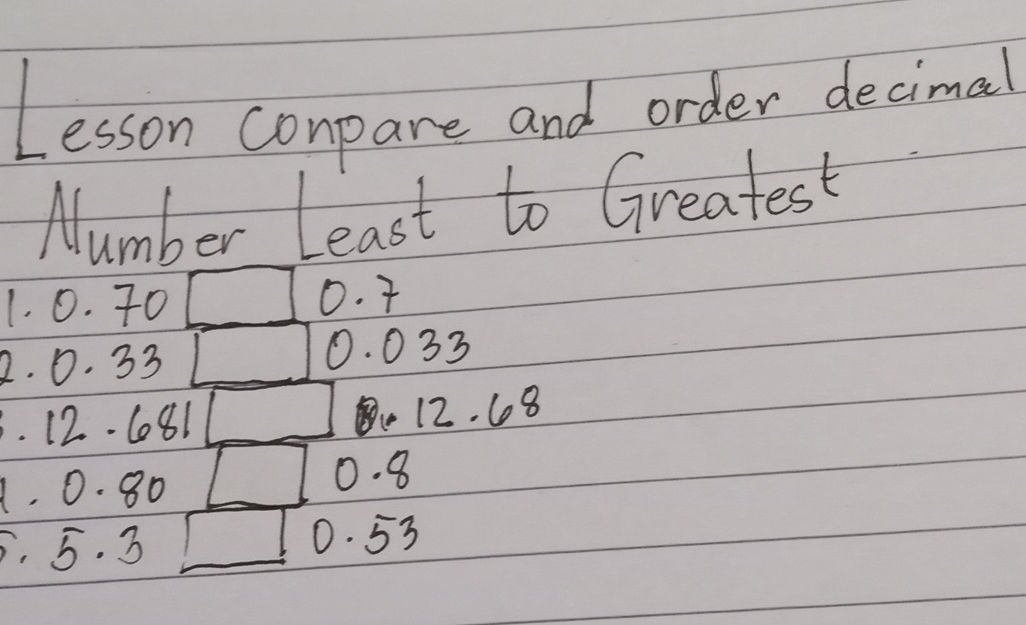 Lesson conpare and order decimal
Number Least to Greatest
1. 0.70 0.7
2. 0.33 0.033
. 12.681 12.68
. 0.80 0.8
5. 5.3 0.53